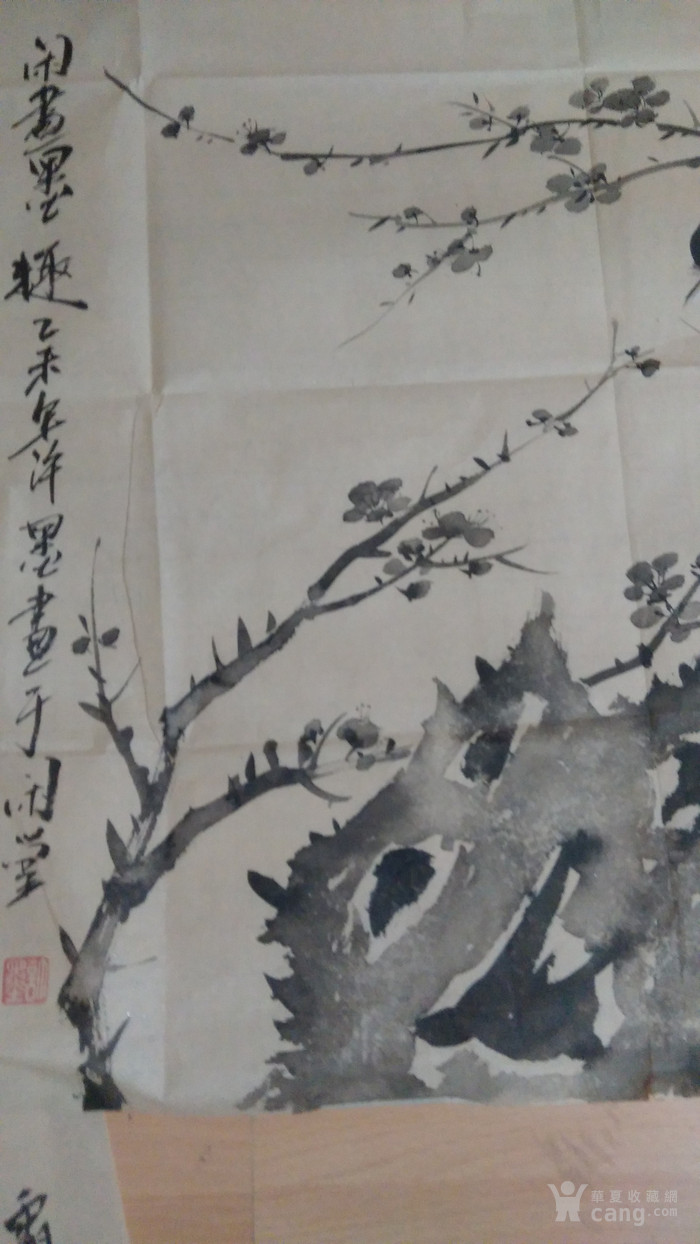 闲畫墨趣乙未年许墨畫于闲堂
華夏收藏網
cang.com